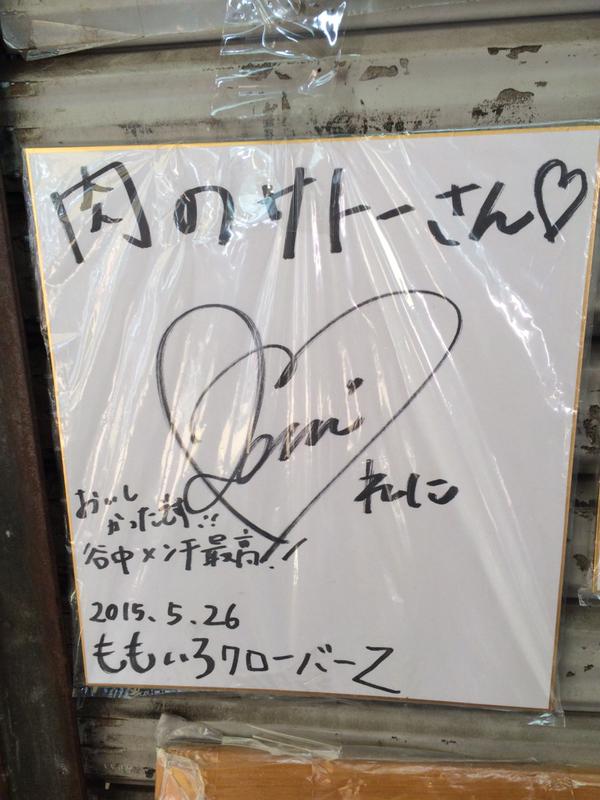 肉のサトーさん♡
れに
おいし
かったです!!
谷中メンチ最高!!
2015.5.26
ももいろクローバーZ